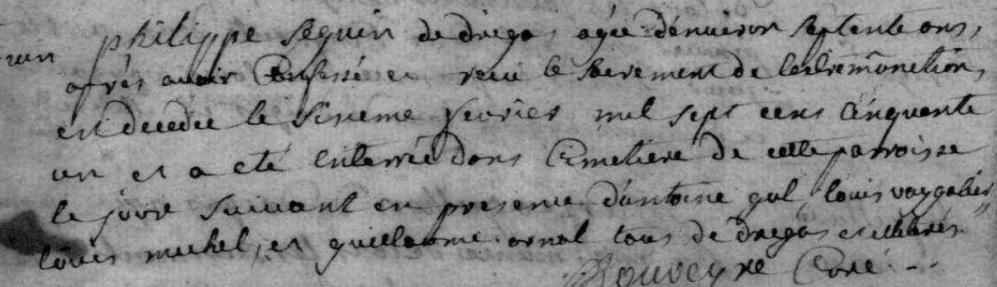 philippe seguin de dregas agée denuiron septente ans,
aprés auoir Confessé et reçu le sacrement de lextremonction,
est decedee le sixieme feurier mil sept cens Cinquante
un et a eté enterrée dans Cemetiere de cette parroisse
le jour suiuant en presence dantoine gal, louis
louis michel, et guillaume arnal tous de dregas
Rouveyre Curé